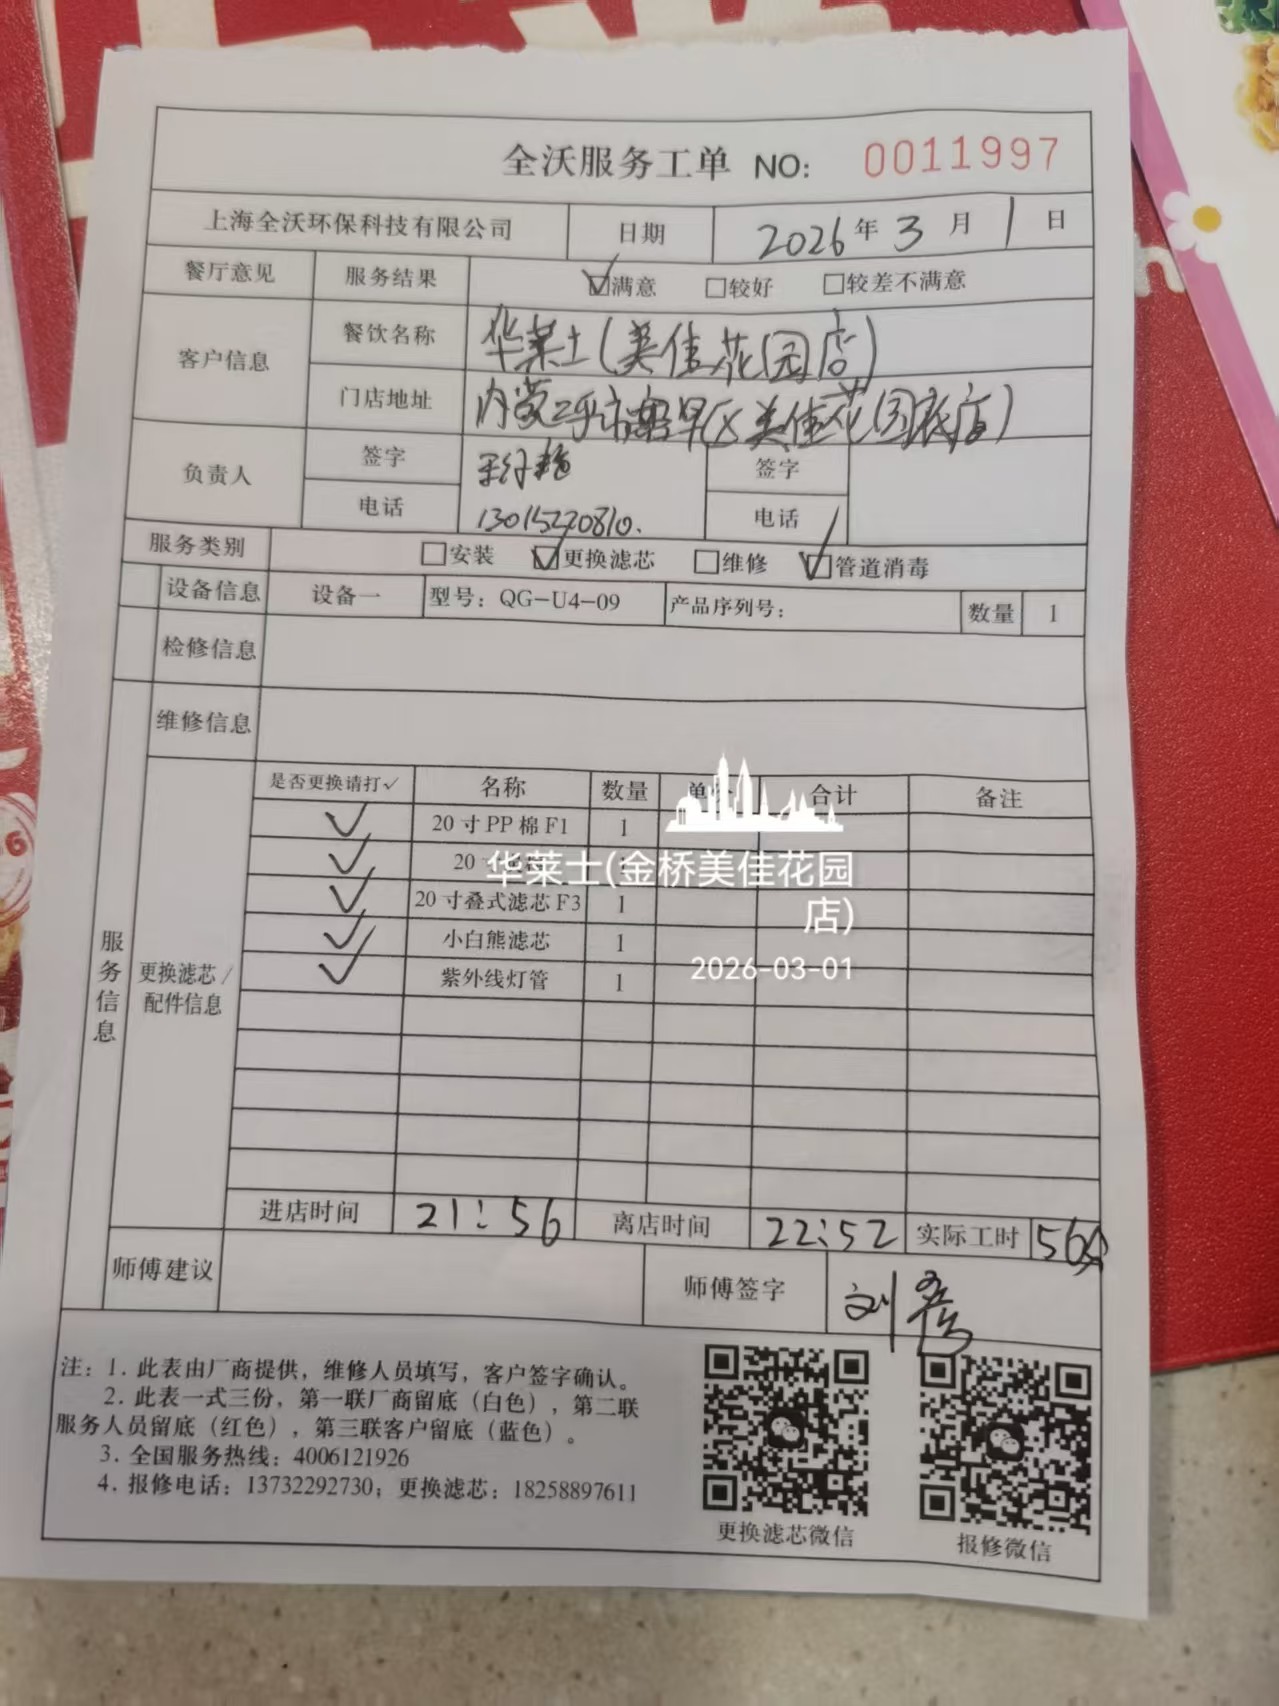 全沃服务工单 NO: 0011997
上海全沃环保科技有限公司 日期 2026年3月1日
餐厅意见 服务结果 ☑满意 □较好 □较差不满意
客户信息 餐饮名称 华莱士(美佳花园店)
门店地址 内蒙 市 区美佳花园底店)
负责人 签字 签字
电话 13015220810. 电话
服务类别 □安装 ☑更换滤芯 □维修 ☑管道消毒
设备信息 设备一 型号: QG-U4-09 产品序列号: 数量 1
检修信息
维修信息
服务信息
更换滤芯/配件信息
是否更换请打✓ 名称 数量 单 合计 备注
✓ 20寸PP棉F1 1
✓ 20
✓ 20寸叠式滤芯F3 1
✓ 小白熊滤芯 1
✓ 紫外线灯管 1
华莱士(金桥美佳花园
店)
2026-03-01
进店时间 21:56 离店时间 22:52 实际工时 56
师傅建议 师傅签字 刘
注: 1. 此表由厂商提供，维修人员填写，客户签字确认。
2. 此表一式三份，第一联厂商留底（白色），第二联
服务人员留底（红色），第三联客户留底（蓝色）。
3. 全国服务热线: 4006121926
4. 报修电话: 13732292730; 更换滤芯: 18258897611
更换滤芯微信 报修微信